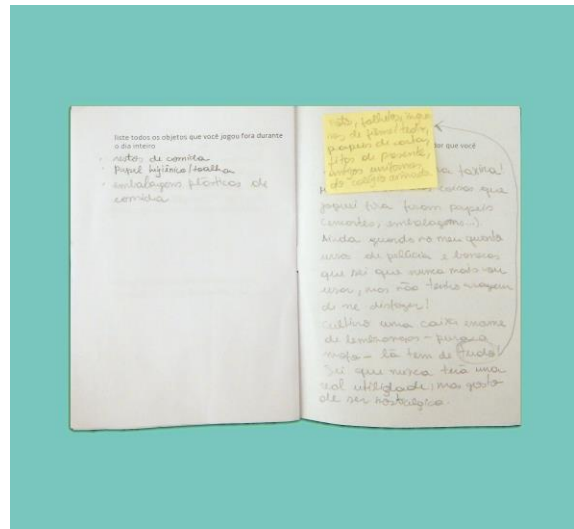 liste todos os objetos que você jogou fora durante
o dia inteiro
- restos de comida
- papel higiênico/toalha
- embalagens plásticas de
comida
de filme/teatro,
de cartas,
fitas de presente,
que você
faxina!
coisas que
joguei fora foram papéis
embalagens...).
Ainda guardo no meu quarto
ursos de pelúcia e bonecas
que sei que nunca mais vou
usar, mas não tenho coragem
de me desfazer!
Cultivo uma caixa enorme
de lembranças - pura a
mofo - lá tem de tudo!
Sei que nunca terá uma
real utilidade, mas gosto
de ser nostálgica.